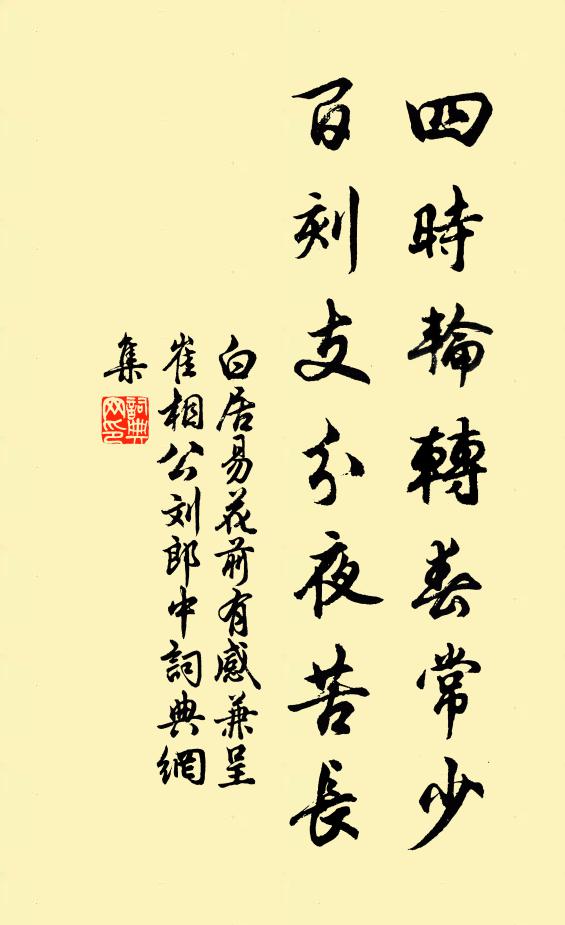 四時輪轉春常少
百刻支分夜苦長
白居易花前有感兼呈
崔相公刘郎中詞典網
集
詞典
网印